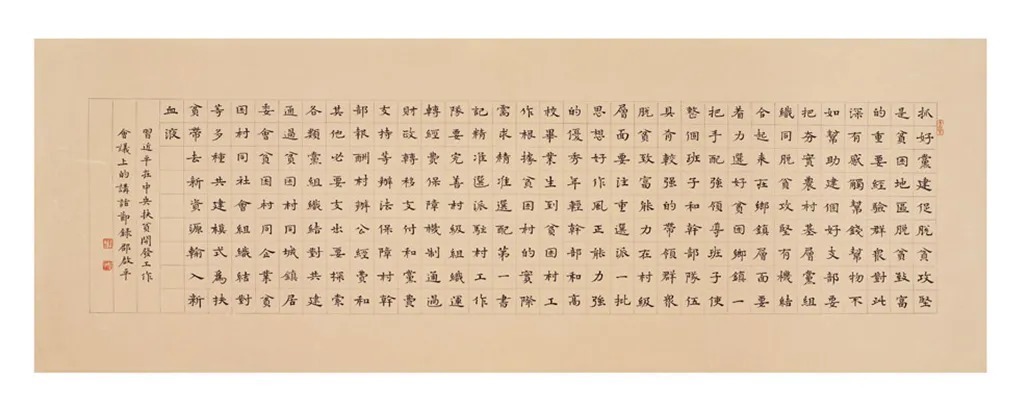 抓好黨建促脫貧攻堅
是貧困地區脫貧致富
的重要經驗群衆對此
深有感觸幫錢幫物不
如幫助建個好支部要
把夯實農村基層黨組
織同脫貧攻堅有機結
合起來在鄉鎮層面要
着力選好貧困鄉鎮一
把手配強領導班子使
整個班子和幹部隊伍
具有較強的帶領群衆
脫貧致富能力在村級
層面要注重選派一批
思想好作風正能力強
的優秀年輕幹部和高
校畢業生到貧困村工
作根據貧困村的實際
需求精准選配第一書
記精准選派駐村工作
隊要完善村級組織運
轉經費保障機制通過
財政轉移支付和黨費
支持等辦法保障村幹
部報酬村辦公經費和
其他必要支出要探索
各類黨組織結對共建
通過貧困村同城鎮居
委會貧困村同企業貧
困村同社會組織結對
等多種共建模式爲扶
貧帶去新資源輸入新
血液
習近平在中央扶貧開發工作
會議上的講話節錄邵啟平